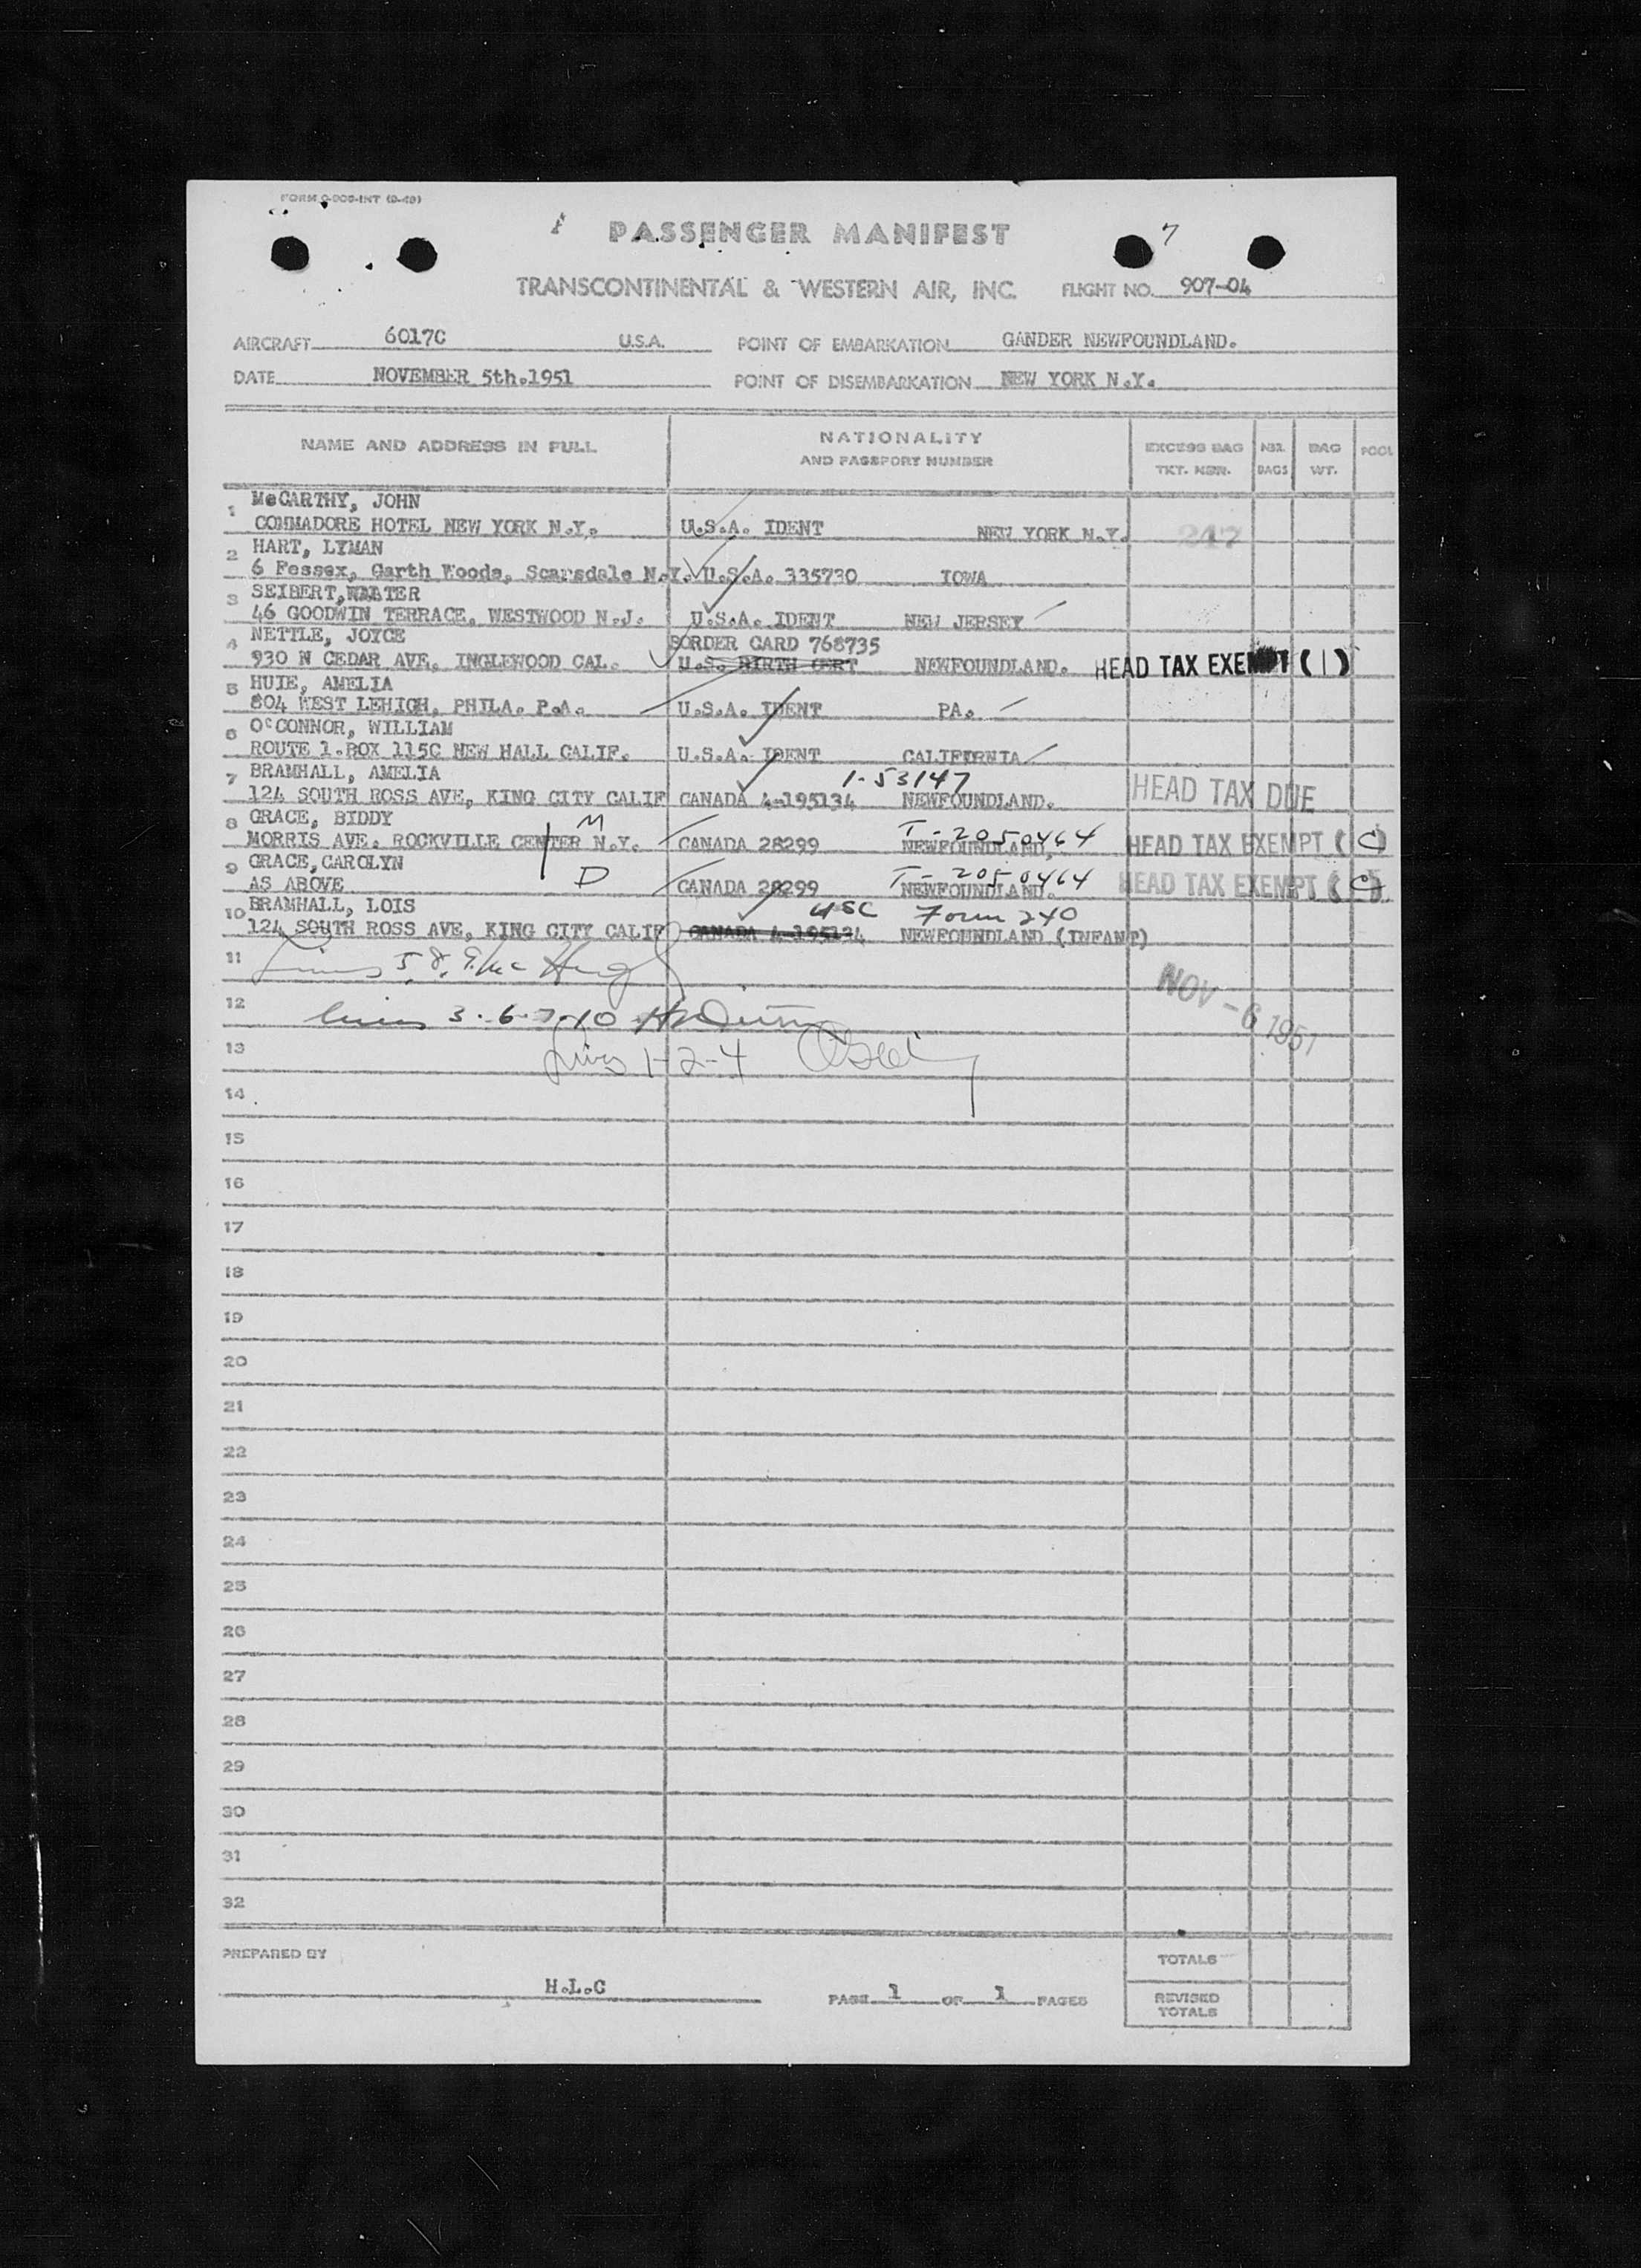 FORM O-909-INT (9-49)
PASSENGER MANIFEST
7
TRANSCONTINENTAL & WESTERN AIR, INC. FLIGHT NO. 907-04
AIRCRAFT 6017C U.S.A. POINT OF EMBARKATION GANDER NEWFOUNDLAND.
DATE NOVEMBER 5th.1951 POINT OF DISEMBARKATION NEW YORK N.Y.
NAME AND ADDRESS IN FULL NATIONALITY AND PASSPORT NUMBER EXCESS BAG TKT. NBR. NBR. BAGS BAG WT. POOL
1 McCARTHY, JOHN
COMMADORE HOTEL NEW YORK N.Y. U.S.A. IDENT NEW YORK N.Y. 247
2 HART, LYMAN
6 Fessex, Garth Woods, Scarsdale N.Y. U.S.A. 335730 IOWA
3 SEIBERT, WALTER
46 GOODWIN TERRACE, WESTWOOD N.J. U.S.A. IDENT NEW JERSEY
4 NETTLE, JOYCE BORDER CARD 768735
930 N CEDAR AVE, INGLEWOOD CAL. U.S. BIRTH CERT NEWFOUNDLAND. HEAD TAX EXEMPT (1)
5 HUIE, AMELIA
804 WEST LEHIGH, PHILA. P.A. U.S.A. IDENT PA.
6 O'CONNOR, WILLIAM
ROUTE 1.BOX 115C NEW HALL CALIF. U.S.A. IDENT CALIFORNIA
7 BRAMHALL, AMELIA 1-53147
124 SOUTH ROSS AVE, KING CITY CALIF CANADA 4-195134 NEWFOUNDLAND. HEAD TAX DUE
8 GRACE, BIDDY M T-2050464
MORRIS AVE. ROCKVILLE CENTER N.Y. CANADA 28299 NEWFOUNDLAND. HEAD TAX EXEMPT (C)
9 GRACE, CAROLYN D T-2050464
AS ABOVE CANADA 28299 NEWFOUNDLAND. HEAD TAX EXEMPT (C)
10 BRAMHALL, LOIS USC Form 240
124 SOUTH ROSS AVE, KING CITY CALIF CANADA 4-195134 NEWFOUNDLAND (INFANT)
11 Lines 5,8,9
12 lines 3-6-7-10 NOV -6 1951
13 Lines 1-2-4
14
15
16
17
18
19
20
21
22
23
24
25
26
27
28
29
30
31
32
PREPARED BY H.L.C PAGE 1 OF 1 PAGES
TOTALS
REVISED TOTALS